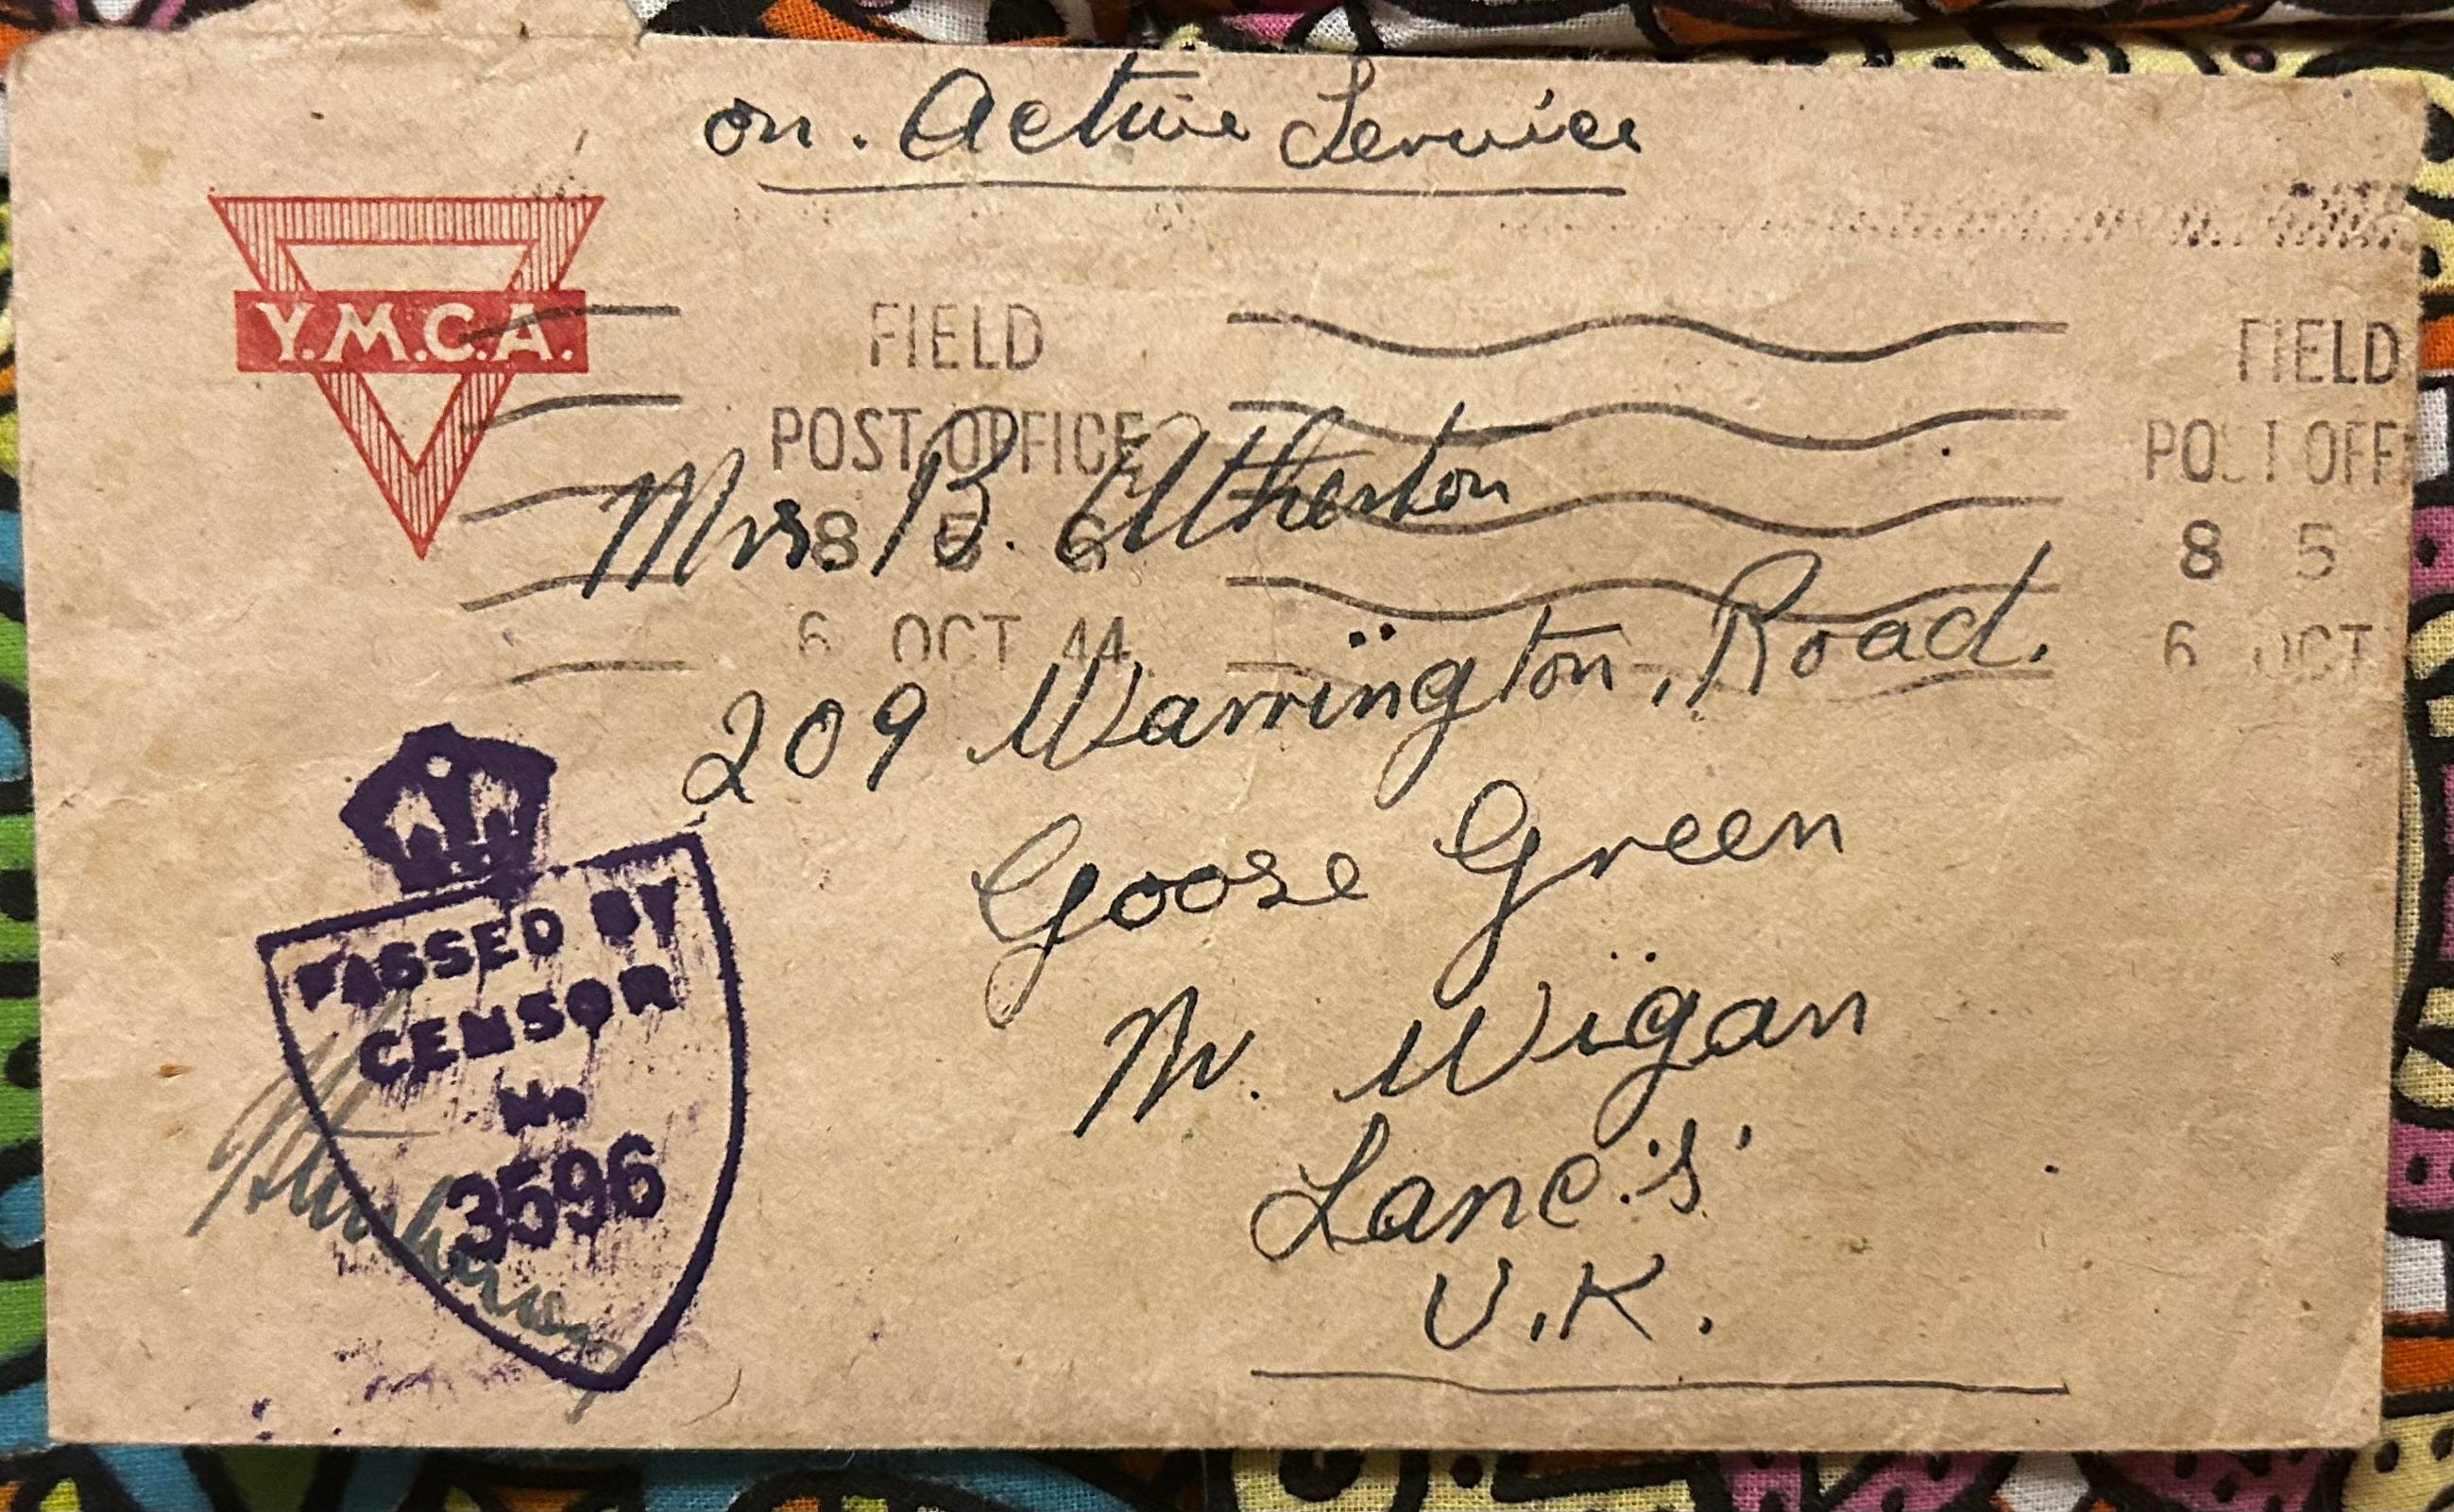 on. Active Service
Y.M.C.A.
FIELD
POST OFFICE
8 5 6
6 OCT 44
FIELD
POST OFF
8 5
6 OCT
Mrs. B. Atherton
209 Warrington, Road.
Goose Green
Nr. Wigan
Lanc.'s'
U.K.
PASSED BY
CENSOR
No
3596